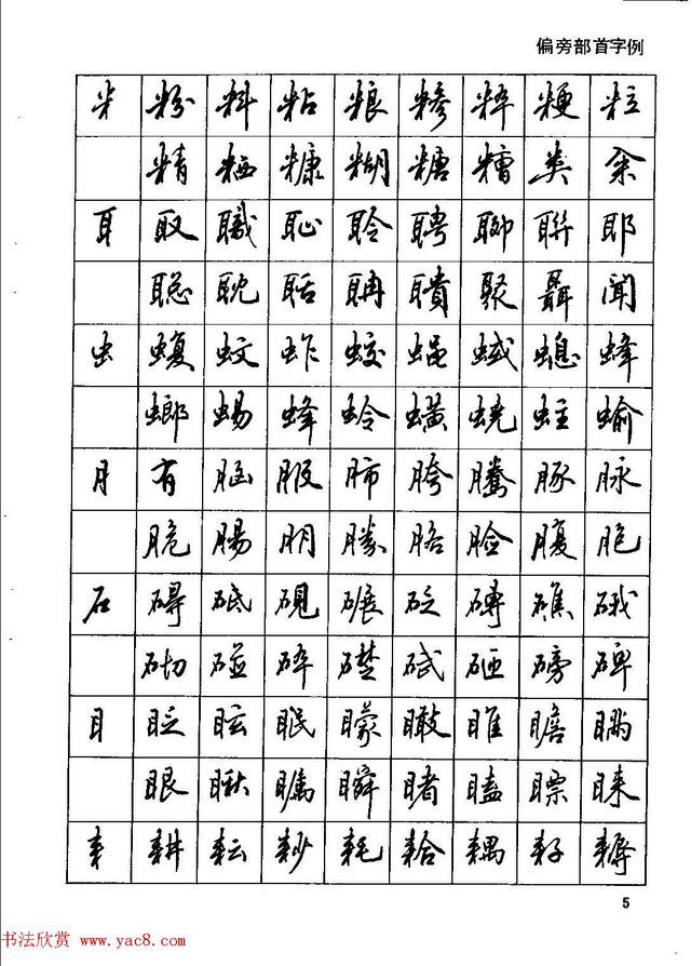 偏旁部首字例
米 粉 料 粘 粮 糁 粹 粳 粒
精 粞 糠 糊 糖 糟 类
耳 取 職 耻 聆 聘 聊 聯 耶
聪 耽 聒 聃 聵 聚 聶 聞
虫 蝮 蚊 蚱 蛟 蝇 蜮 螅 蜂
螂 蜴 蜂 蛉 蟥 蛲 蛀 蝓
月 有 服 肺 胯 騰 豚 脉
脆 腸 明 勝 胳 脸 腹 胞
石 碍 砥 硯 碾 砭 磚 礁 硪
砌 碰 碎 礎 砥 硒 磅 碑
目 眨 眩 眠 矇 瞰 睢 瞻 瞒
眼 瞅 瞩 瞬 睹 瞌 瞟 睐
耒 耕 耘 耖 耗 耠 耦 耔 耨
5
书法欣赏 www.yac8.com